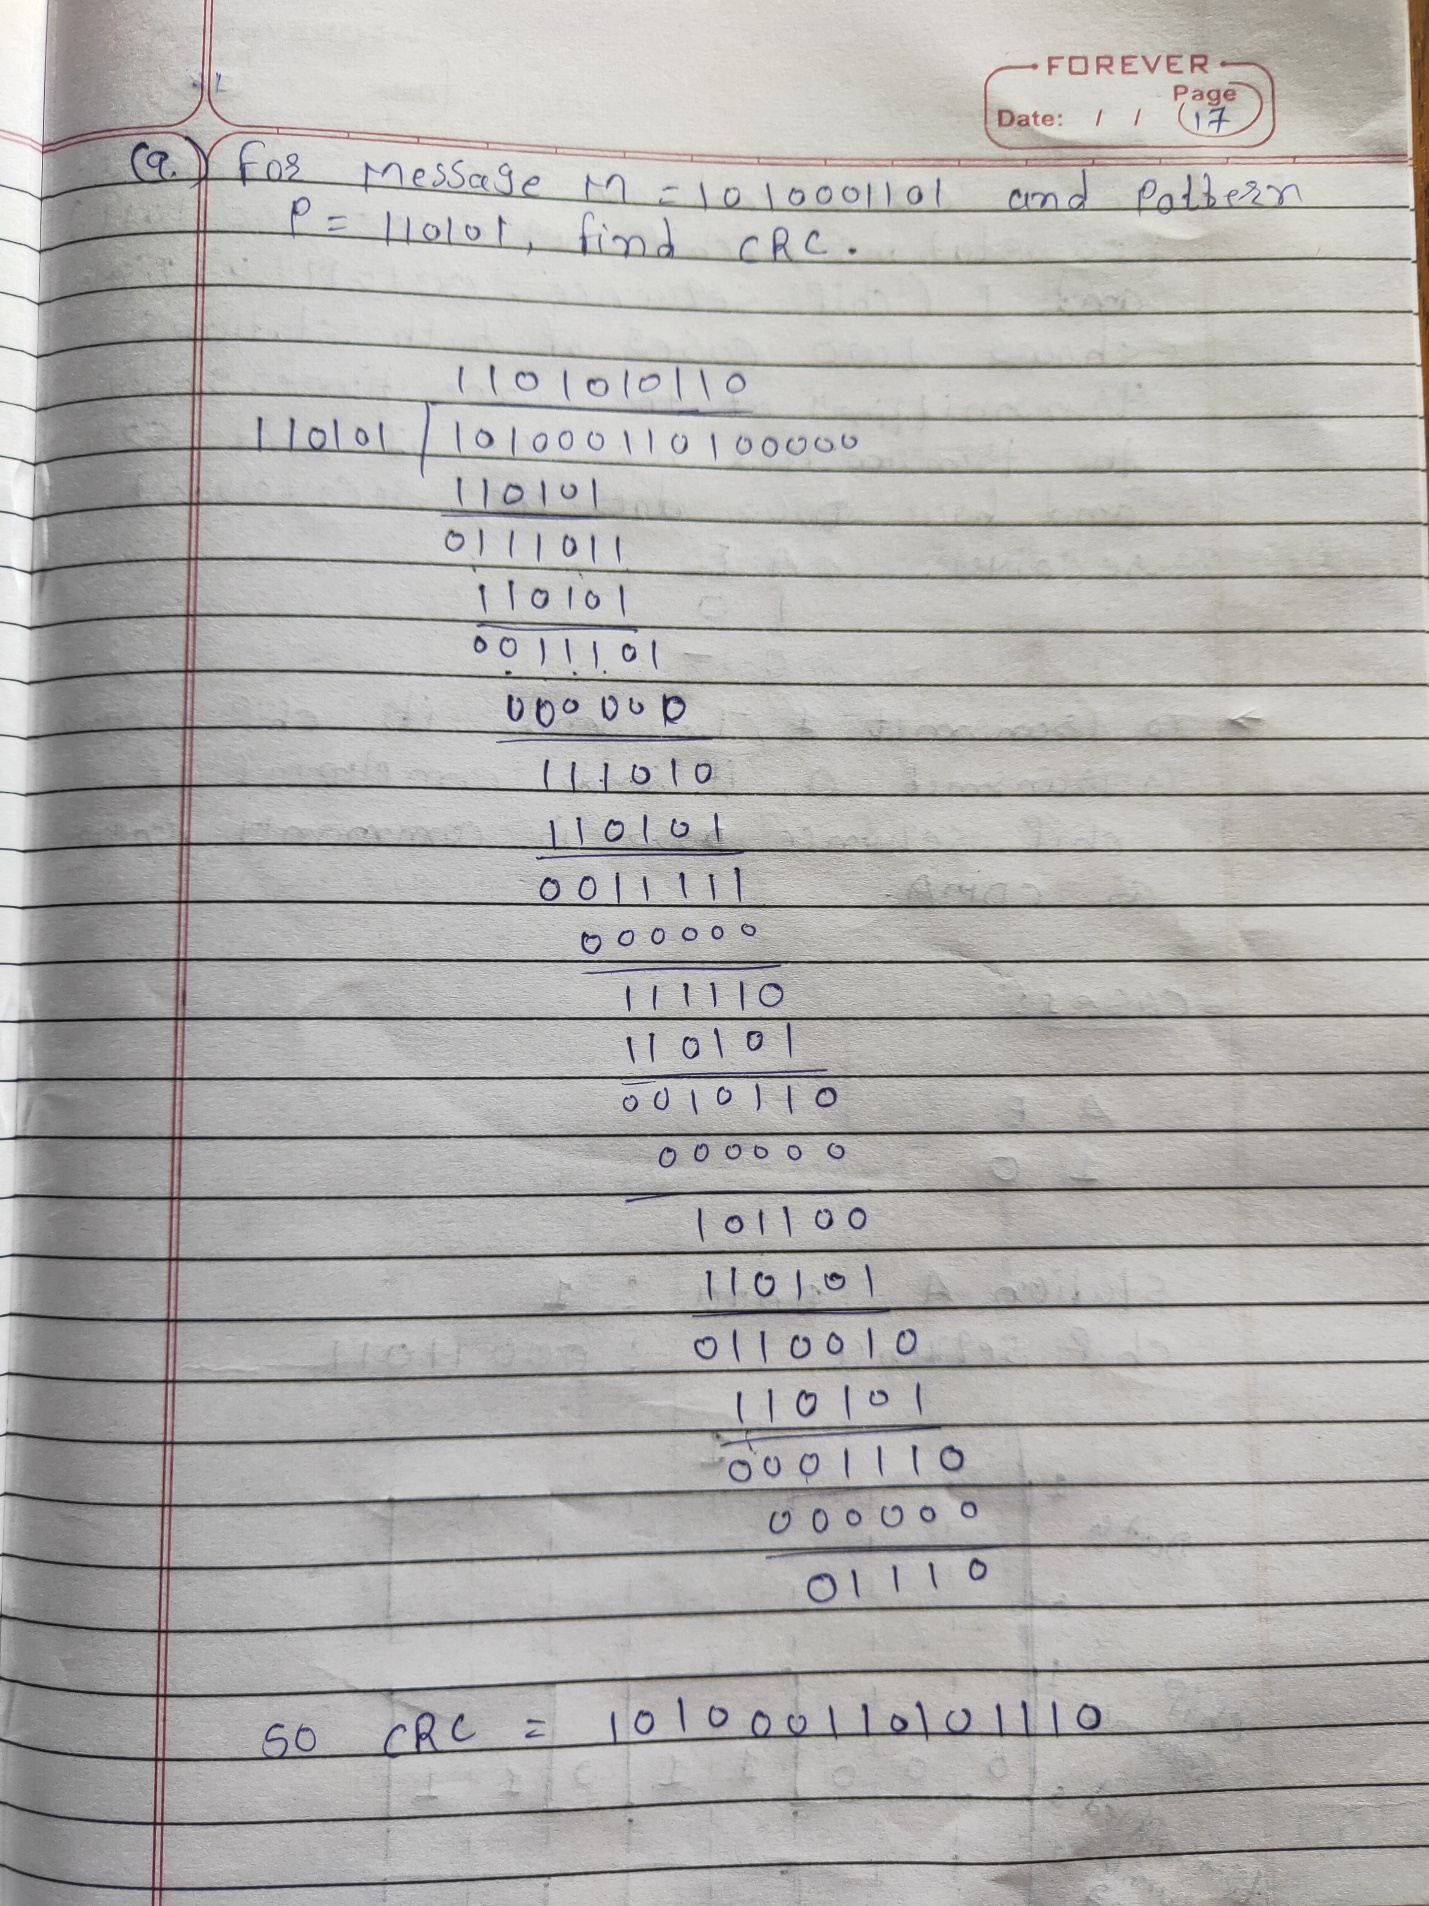 FOREVER
Page
Date: / / 17
(9.) For Message M = 1010001101 and Pattern
P = 110101, find CRC.
1101010110
110101 101000110100000
110101
0111011
110101
0011101
000000
111010
110101
0011111
000000
111110
110101
0010110
000000
101100
110101
0110010
110101
0001110
000000
01110
SO CRC = 101000110101110